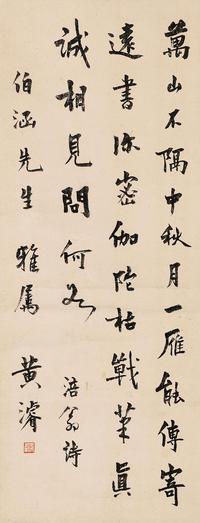 萬山不隔中秋月一雁能傳寄
遠書深密伽陀枯戰筆眞
誠相見問何如 涪翁詩
伯涵先生雅屬 黃濬